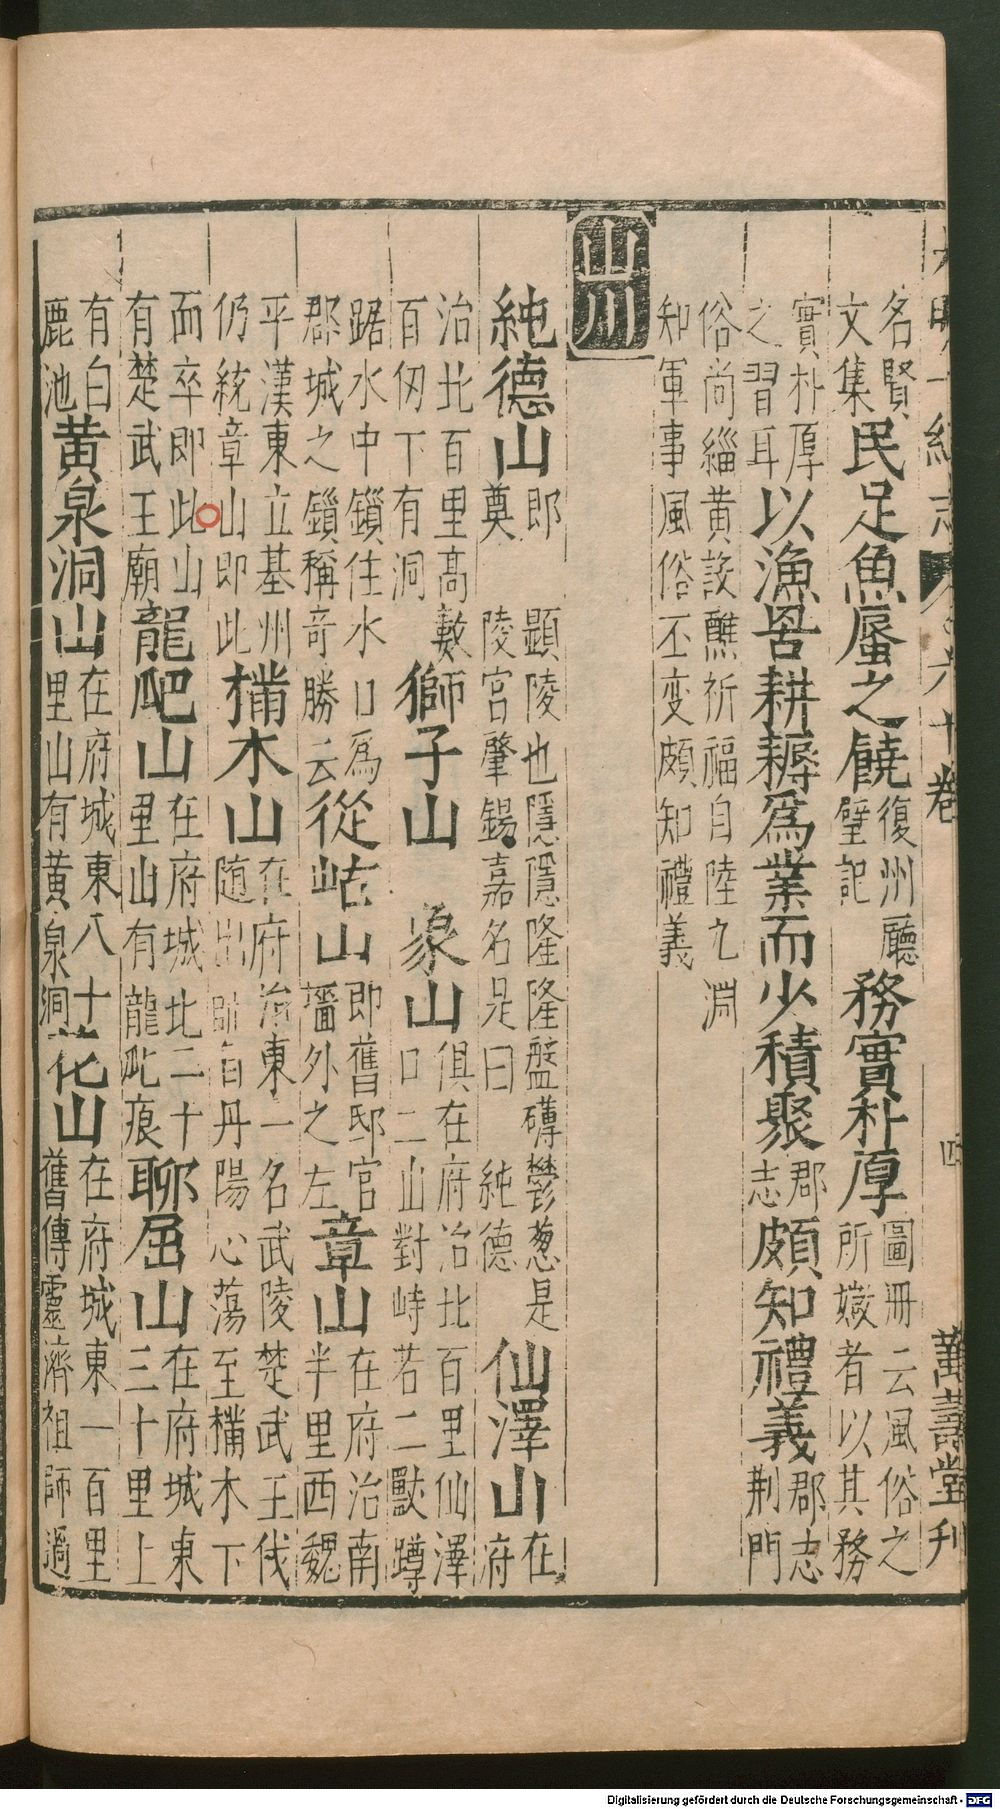 大明一統志 卷之六十 四 萬壽堂刊
名賢
文集
民足魚蜃之饒
復州廳
壁記
務實朴厚
圖冊云風俗之
所嫰者以其務
實朴厚
之習耳
以漁罟耕耨爲業而少積聚
郡
志
頗知禮義
郡志
荆門
俗尚緇黄設醮祈福自陸九淵
知軍事風俗丕变頗知禮義
山川
純德山
即顯陵也隱隱隆隆盤礴鬱葱是
奠陵宮肇錫嘉名是曰純德
仙澤山
在
府
治北百里高數
百仞下有洞
獅子山
象山
俱在府治北百里仙澤
口二山對峙若二獸蹲
踞水中鎖住水口爲
郡城之鎖稱奇勝云
從岵山
即舊邸宫
墻外之左
章山
在府治南
半里西魏
平漢東立基州
仍統章山即此
樠木山
在府治東一名武陵楚武王伐
随出師自丹陽心蕩至樠木下
而卒即此山
有楚武王廟
龍爬山
在府城北二十
里山有龍爬痕
聊屈山
在府城東
三十里上
有白
鹿池
黄泉洞山
在府城東八十
里山有黄泉洞
花山
在府城東一百里
舊傳靈濟祖師過
Digitalisierung gefördert durch die Deutsche Forschungsgemeinschaft - DFG